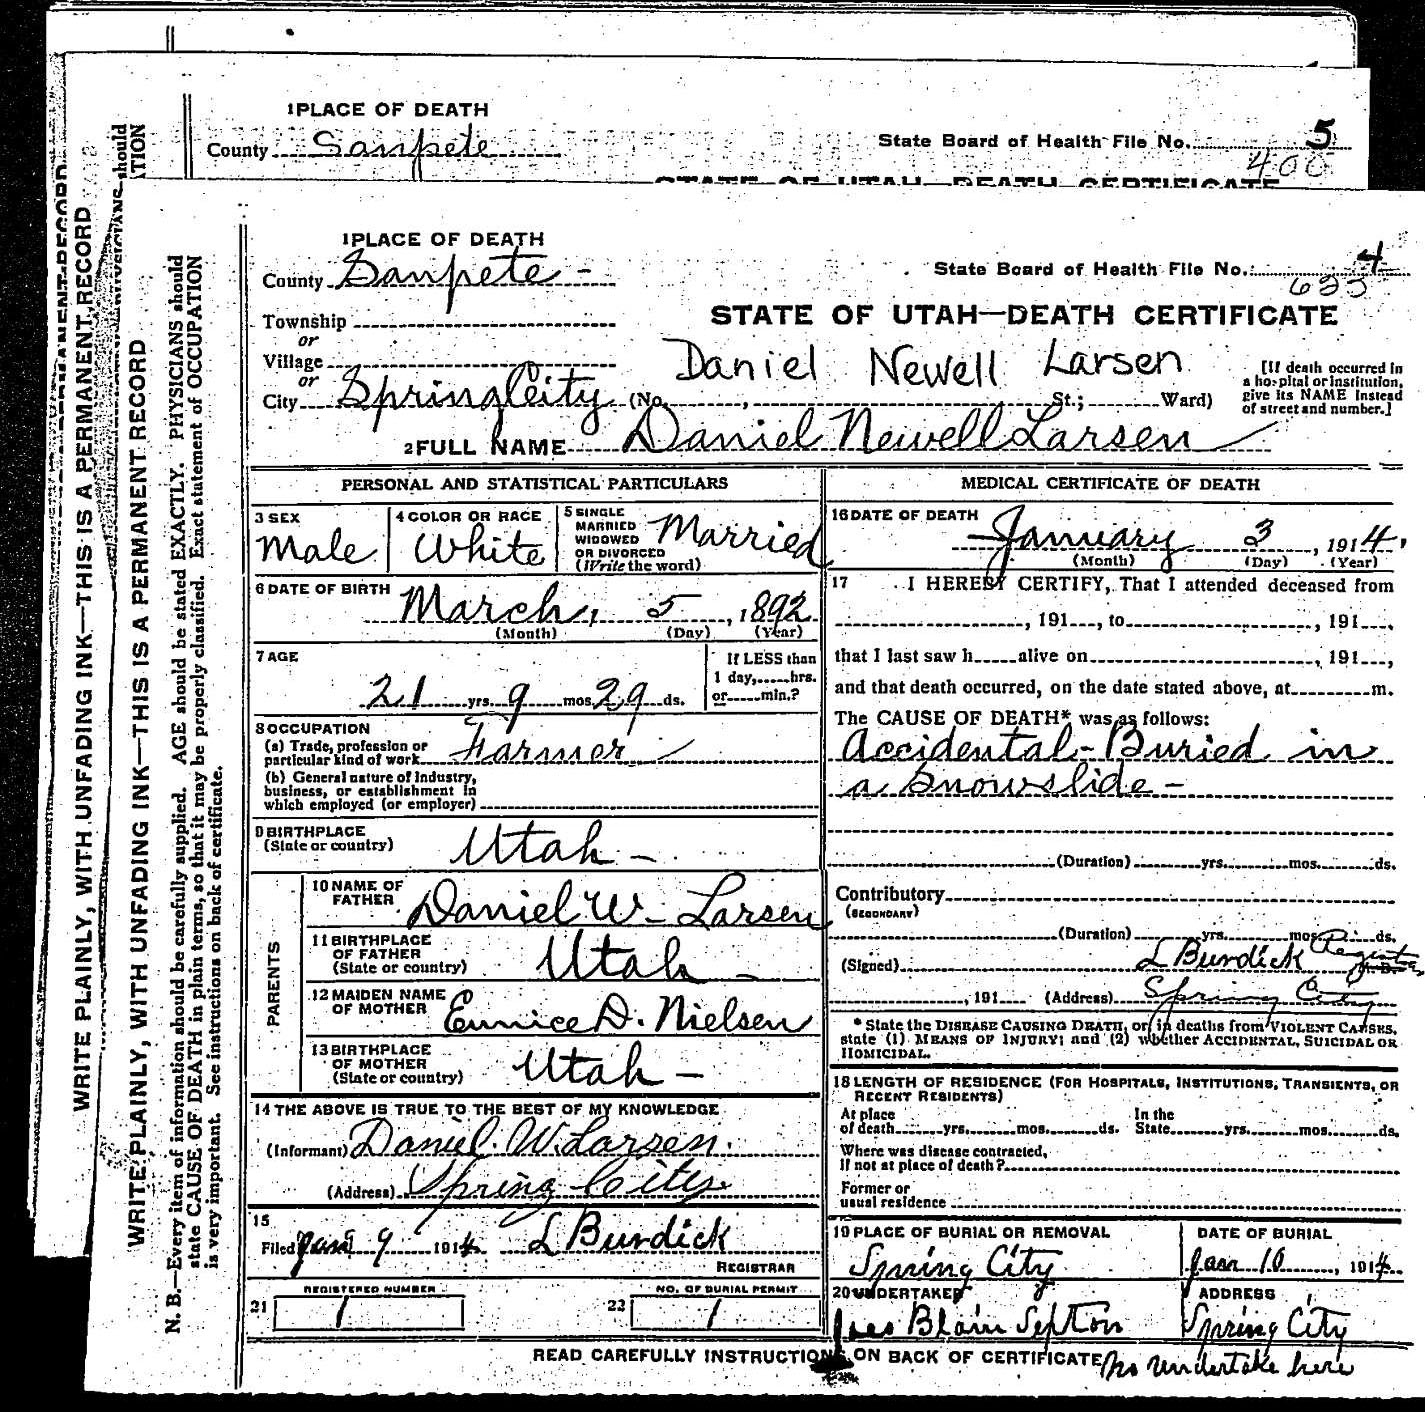 1 PLACE OF DEATH
County Sanpete
State Board of Health File No. 5
400
STATE OF UTAH—DEATH CERTIFICATE
WRITE PLAINLY, WITH UNFADING INK—THIS IS A PERMANENT RECORD
WRITE PLAINLY, WITH UNFADING INK—THIS IS A PERMANENT RECORD
N. B.—Every item of information should be carefully supplied. AGE should be stated EXACTLY. PHYSICIANS should
state CAUSE OF DEATH in plain terms, so that it may be properly classified. Exact statement of OCCUPATION
is very important. See instructions on back of certificate.
1 PLACE OF DEATH
County Sanpete -
State Board of Health File No. 4
625
STATE OF UTAH—DEATH CERTIFICATE
Township
or
Village
or
City Spring City (No. , St.; Ward)
Daniel Newell Larsen
[If death occurred in
a hospital or institution,
give its NAME instead
of street and number.]
2 FULL NAME Daniel Newell Larsen
PERSONAL AND STATISTICAL PARTICULARS
3 SEX
Male
4 COLOR OR RACE
White
5 SINGLE
MARRIED
WIDOWED
OR DIVORCED
(Write the word)
Married
6 DATE OF BIRTH
March, 5, 1892
(Month) (Day) (Year)
7 AGE
21 yrs. 9 mos. 29 ds.
If LESS than
1 day, hrs.
or min.?
8 OCCUPATION
(a) Trade, profession or
particular kind of work Farmer
(b) General nature of industry,
business, or establishment in
which employed (or employer)
9 BIRTHPLACE
(State or country)
Utah -
PARENTS
10 NAME OF
FATHER
Daniel W. Larsen
11 BIRTHPLACE
OF FATHER
(State or country)
Utah -
12 MAIDEN NAME
OF MOTHER
Eunice D. Nielsen
13 BIRTHPLACE
OF MOTHER
(State or country)
Utah -
14 THE ABOVE IS TRUE TO THE BEST OF MY KNOWLEDGE
(Informant) Daniel. W. Larsen.
(Address) Spring City
15
Filed Jan 9 1914 L Burdick
REGISTRAR
21 REGISTERED NUMBER
1
22 NO. OF BURIAL PERMIT
1
MEDICAL CERTIFICATE OF DEATH
16 DATE OF DEATH
January 3, 1914.
(Month) (Day) (Year)
17 I HEREBY CERTIFY, That I attended deceased from
, 191 , to , 191 ,
that I last saw h alive on , 191 ,
and that death occurred, on the date stated above, at m.
The CAUSE OF DEATH* was as follows:
Accidental-Buried in
a Snowslide -
(Duration) yrs. mos. ds.
Contributory
(SECONDARY)
(Duration) yrs. mos. ds.
(Signed) L Burdick Register
, 191 (Address) Spring City
* State the DISEASE CAUSING DEATH, or, in deaths from VIOLENT CAUSES,
state (1) MEANS OF INJURY; and (2) whether ACCIDENTAL, SUICIDAL OR
HOMICIDAL.
18 LENGTH OF RESIDENCE (FOR HOSPITALS, INSTITUTIONS, TRANSIENTS, OR
RECENT RESIDENTS)
At place
of death yrs. mos. ds.
In the
State yrs. mos. ds.
Where was disease contracted,
If not at place of death?
Former or
usual residence
19 PLACE OF BURIAL OR REMOVAL
Spring City
DATE OF BURIAL
Jan 10, 1914
20 UNDERTAKER
Blain Sexton
ADDRESS
Spring City
READ CAREFULLY INSTRUCTIONS ON BACK OF CERTIFICATE
No undertake here